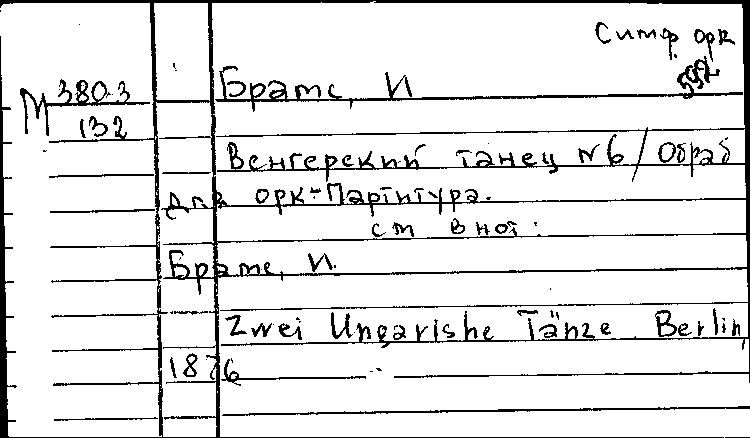 Симф орк
592
М 380-3
132
Брамс, И
Венгерский танец №6/Обраб
для орк-Партитура.
см в нот:
Брамс, И.
Zwei Ungarishe Tänze. Berlin,
1876